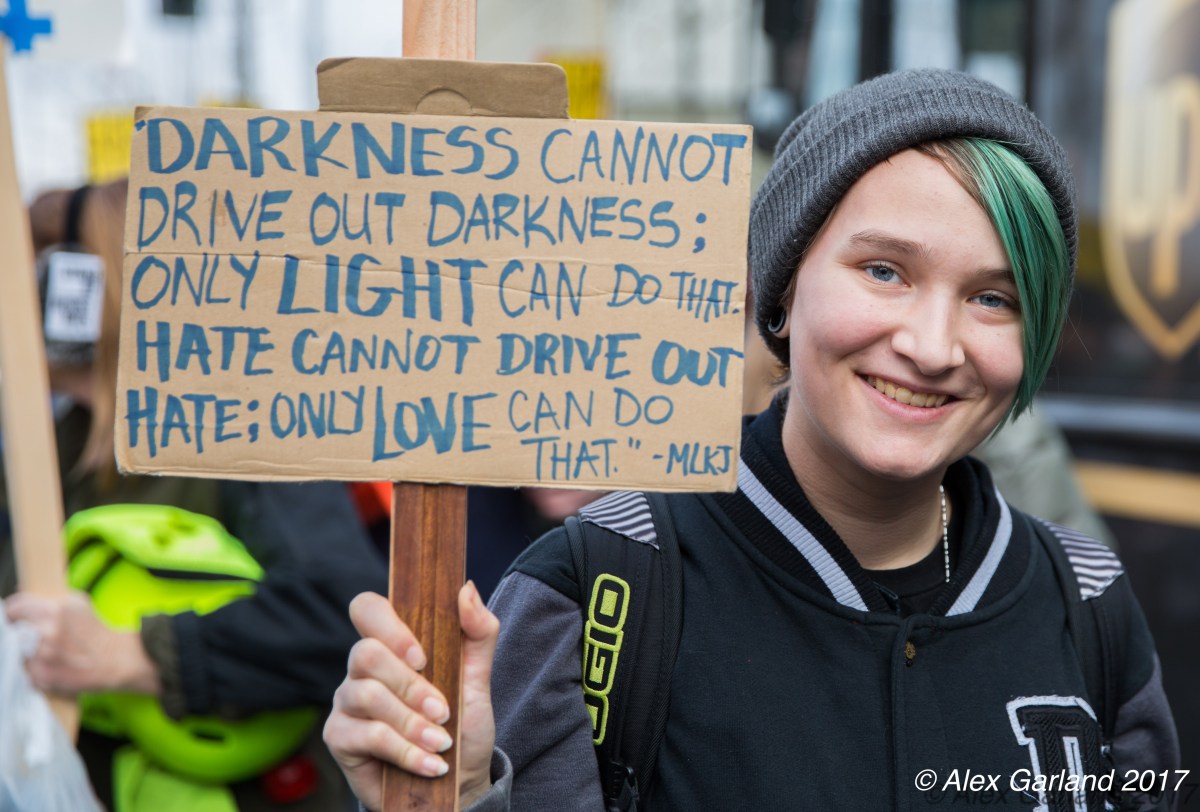 "DARKNESS CANNOT
DRIVE OUT DARKNESS;
ONLY LIGHT CAN DO THAT.
HATE CANNOT DRIVE OUT
HATE; ONLY LOVE CAN DO
THAT." -MLKJ
OGIO
© Alex Garland 2017